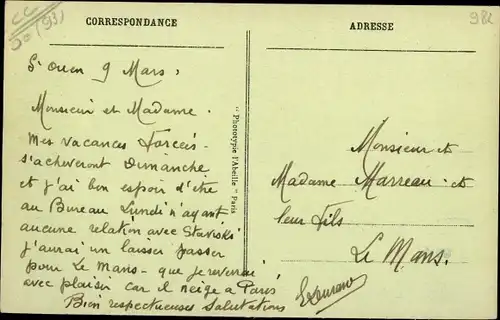 CC
50 (93)
982
CORRESPONDANCE
St Ouen 9 Mars.
Monsieur et Madame.
Mes vacances Forcées
s'acheveront Dimanche
et j'ai bon espoir d'être
au Bureau Lundi n'ayant
aucune relation avec Staviski
j'aurai un laisser passer
pour Le Mans - que je reverrai
avec plaisir car il neige à Paris
Bien respectueuses Salutations
"Phototypie l'Abeille" - Paris
ADRESSE
Monsieur et
Madame Marreau et
leur fils
Le Mans.